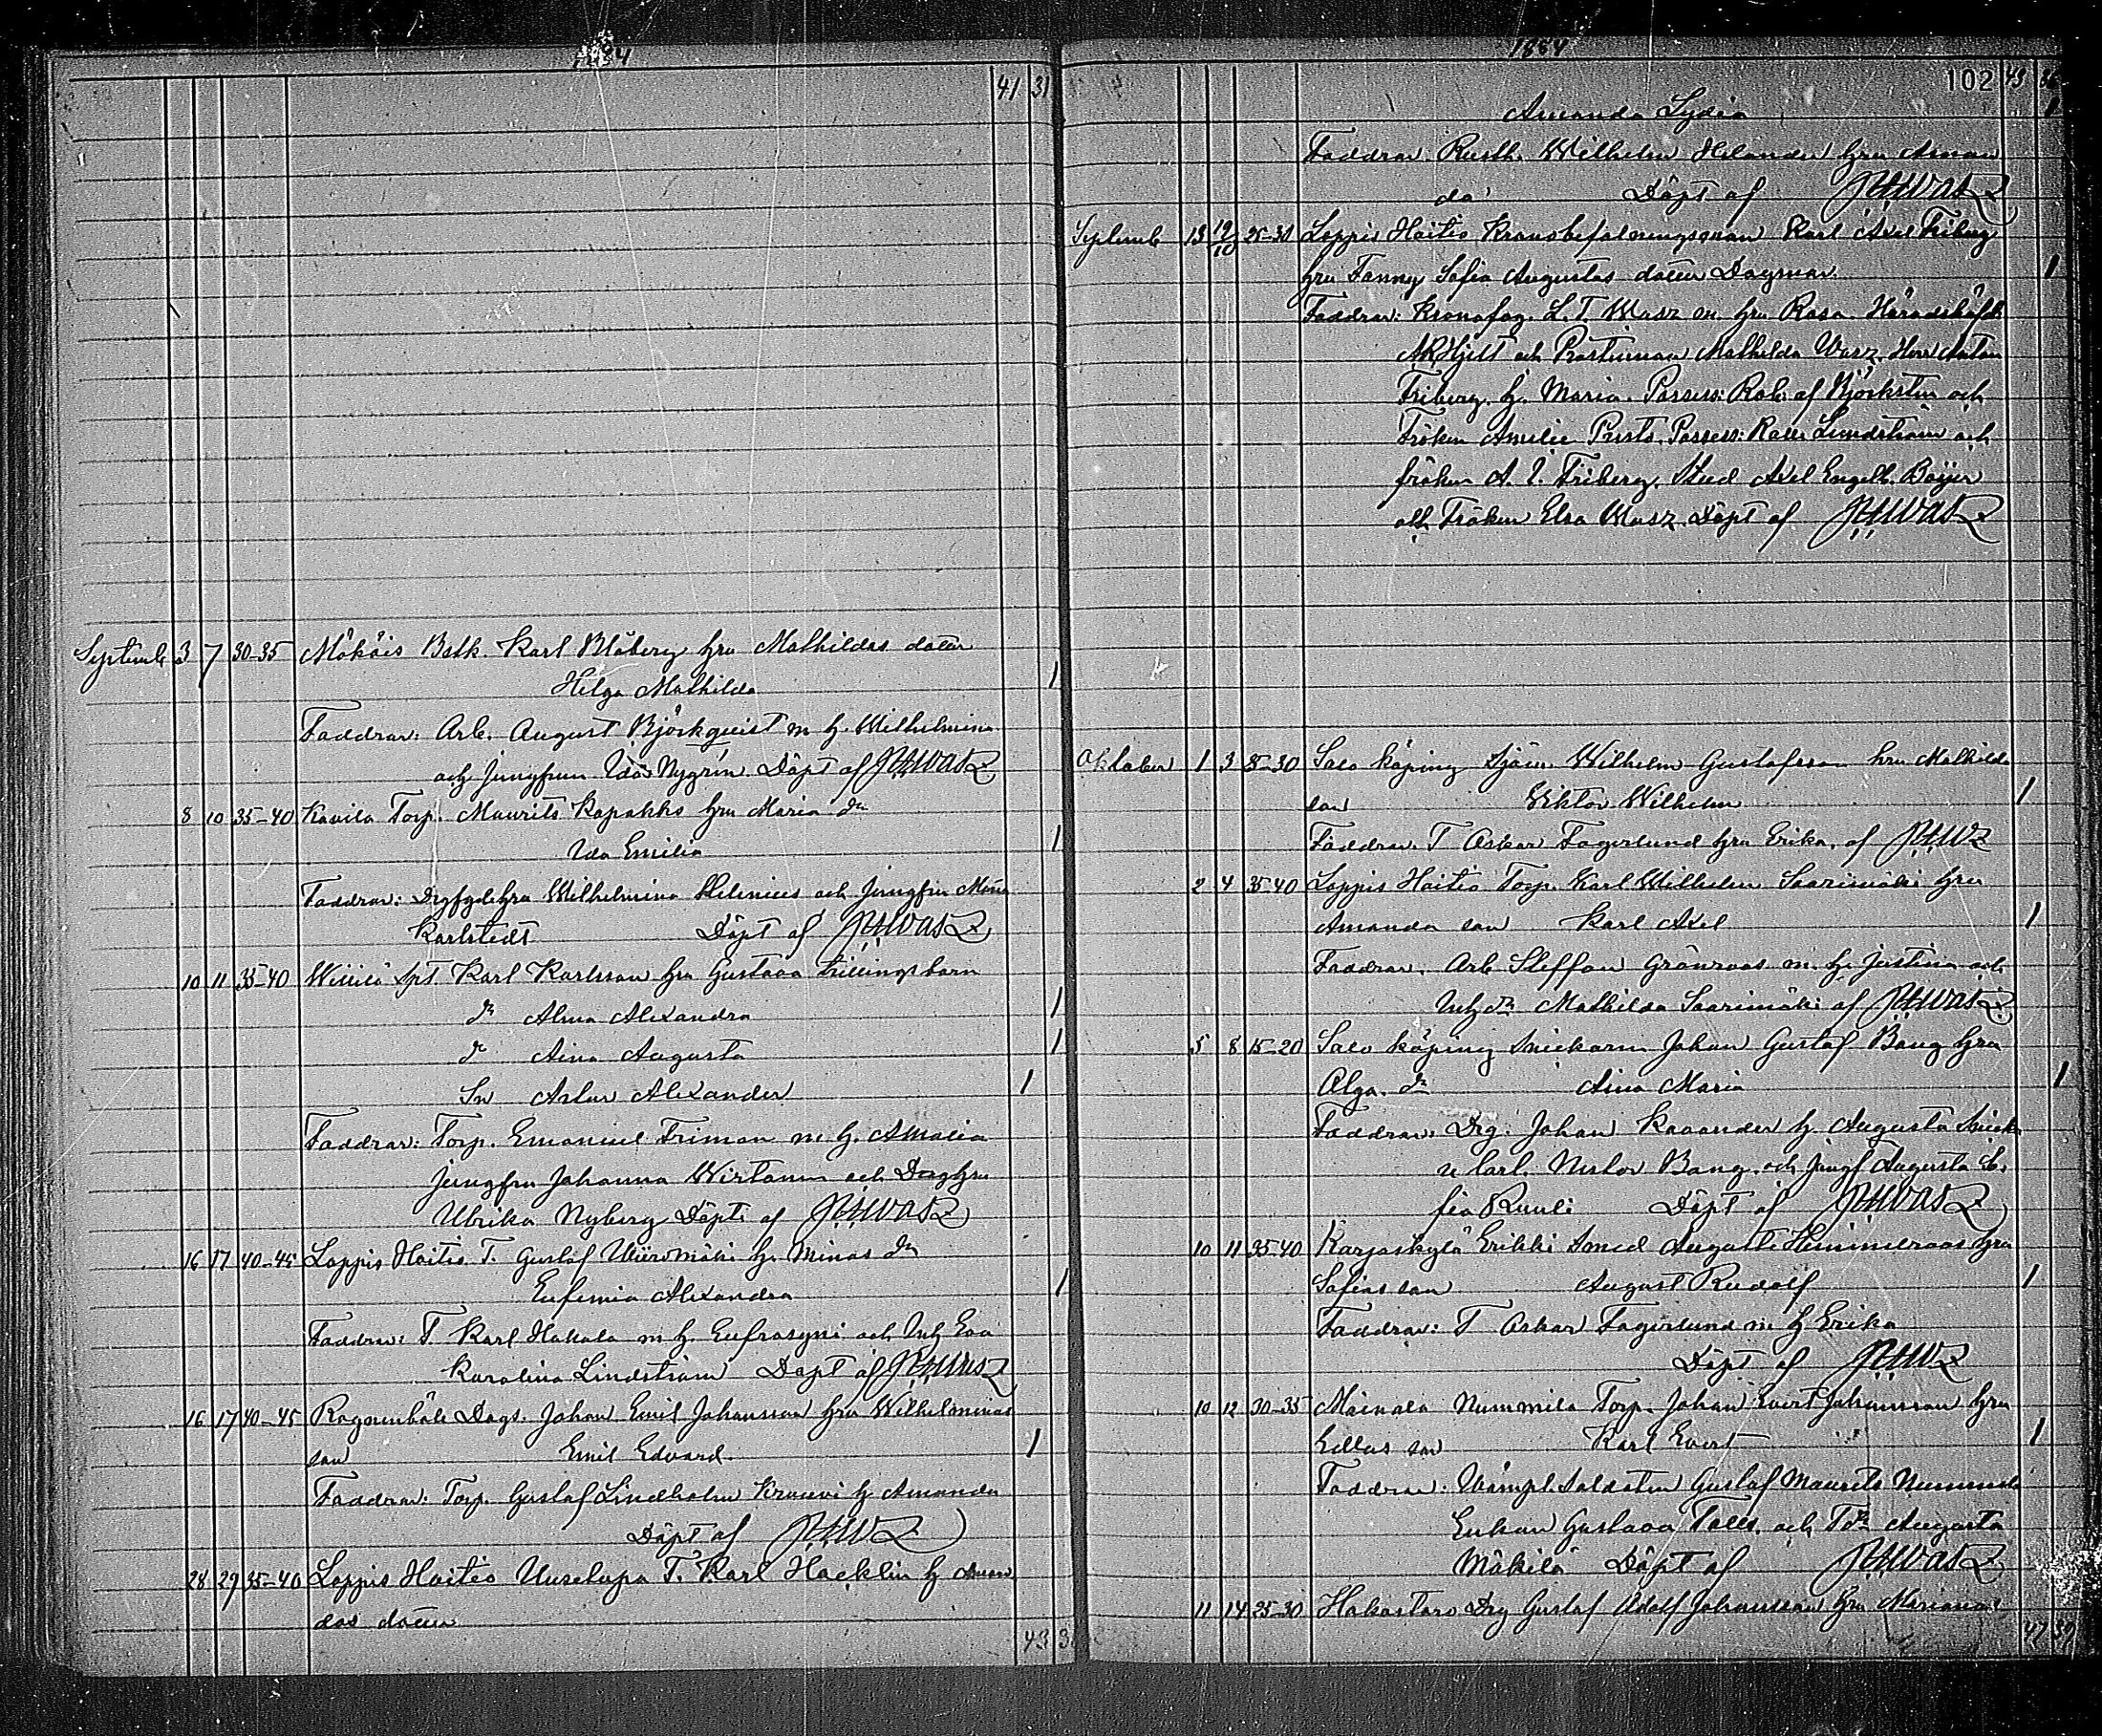 1884
41 31
Septemb 3 7 30-35 Mökäis Bstk. Karl Blåberg hru Mathildas dotter
Helga Mathilda 1
Faddrar: Arb. August Björkqvist m h. Wilhelmina
och jungfrun Ida Nygrén. Döpt af
8 10 35-40 Kavila Torp. Maurits Kapakko hru Maria dr
Ida Emilia 1
Faddrar: Wilhelmina Helenius och Jungfru Mina
Karlstedt Döpt af
10 11 35-40 Karl Karlsson hru Gustava trillingsbarn
dr Alma Alexandra 1
dr Aina Augusta 1
Sn Artur Alexander 1
Faddrar: Torp. Emanuel Friman m. h. Amalia
jungfru Johanna Wirtanen och Dreghru
Ulrika Nyberg Döpt af
16 17 40-45 Loppis Haitis T. Gustaf h. Minas dr
Eufemia Alexandra 1
Faddrar: T Karl Hakala m h. Eufrosyni och Inh Eva
Karolina Lindström Döpt af
16 17 40-45 Dags. Johan Emil Johansson hru Wilhelminas
son Emil Edvard 1
Faddrar: Torp. Gustaf Lindholm h Amanda
Döpt af
28 29 35-40 Loppis Haitis T. Karl Hacklin h Aman
das dotter
43 3
1884
102 43
Amanda Lydia 1
Faddrar: Rusth. Wilhelm Helander hru Aman
da Döpt af
Septemb 13 12/10 25-30 Loppis Haitis Kronobefalningsman Karl Axel Friberg
hru Fanny Sofia Augustas dotter Dagmar. 1
Faddrar: Kronofog. L. T. Wasz m. hru Rosa. Häradshöfd.
Hjelt och Prostinnan Mathilda Wasz. Herr Anton
Friberg h. Maria. Possess: Rob. af Björkstén och
Fröken Amelie Possess: Lundström och
fröken A. Friberg. Stud Axel Engelb. Böijer
och Fröken Elsa Wasz. Döpt af
Oktober 1 3 25-30 Salo köping Sjöm Wilhelm Gustafsson hru Mathilda
son Viktor Wilhelm 1
Faddrar. T Oskar Fagerlund hru Erika. af
2 4 35-40 Loppis Haitis Torp. Karl Wilhelm Saarimäki hru
Amanda son Karl Axel 1
Faddrar. Arb Steffan Grönroos m. h. Justina och
Inh dr Mathilda Saarimäki af
5 8 15-20 Salo köping Snickaren Johan Gustaf Bang hru
Olga. dr Aina Maria 1
Faddrar. Drg. Johan Kavander h. Augusta Snick
Bang. och jungf Augusta So
fia Ruuli Döpt af
10 11 35-40 Karjaskylä Erikki Smed August hru
Sofias son August Rudolf 1
Faddrar: T Oskar Fagerlund m. h Erika
Döpt af
10 12 30-35 Mainala Nummila Torp. Johan Evert Johansson hru
Eddas son Karl Evert 1
Faddrar: Soldaten Gustaf Maurits
Enkan Gustava och Tdr Augusta
Mäkilä Döpt af
11 14 25-30 Hakastaro Drg Gustaf Adolf Johansson hru Marianas
47 39